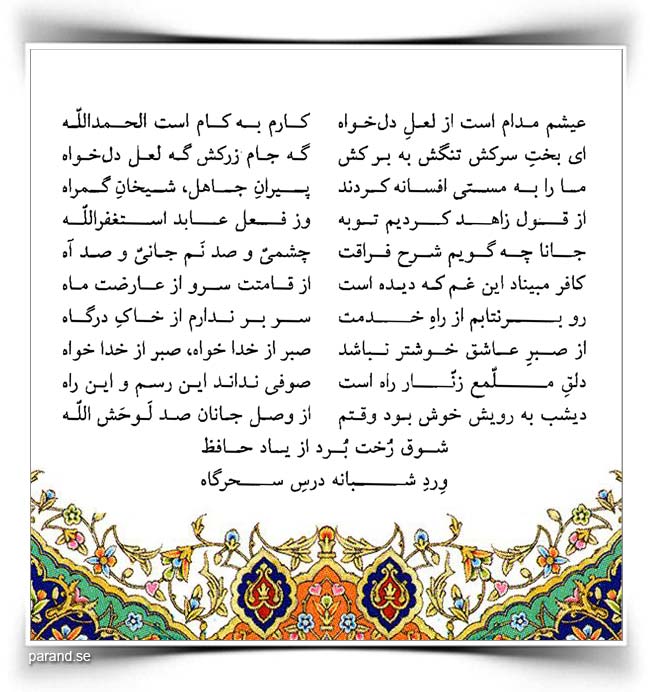 عیشم مدام است از لعلِ دل‌خواه    کارم به کام است الحمداللّه
ای بختِ سرکش تنگش به بر کش    گه جام زرکش گه لعل دل‌خواه
ما را به مستی افسانه کردند    پیرانِ جاهل، شیخانِ گمراه
از قول زاهد کردیم توبه    وز فعل عابد استغفراللّه
جانا چه گویم شرح فراقت    چشمیّ و صد نَم جانیّ و صد آه
کافر مبیناد این غم که دیده است    از قامتت سرو از عارضت ماه
رو برنتابم از راهِ خدمت    سر بر ندارم از خاکِ درگاه
از صبرِ عاشق خوشتر نباشد    صبر از خدا خواه، صبر از خدا خواه
دلقِ ملّمع زنّار راه است    صوفی نداند این رسم و این راه
دیشب به رویش خوش بود وقتم    از وصل جانان صد لَوحَش اللّه
شوق رُخت بُرد از یاد حافظ
وِردِ شبانه درسِ سحرگاه
parand.se